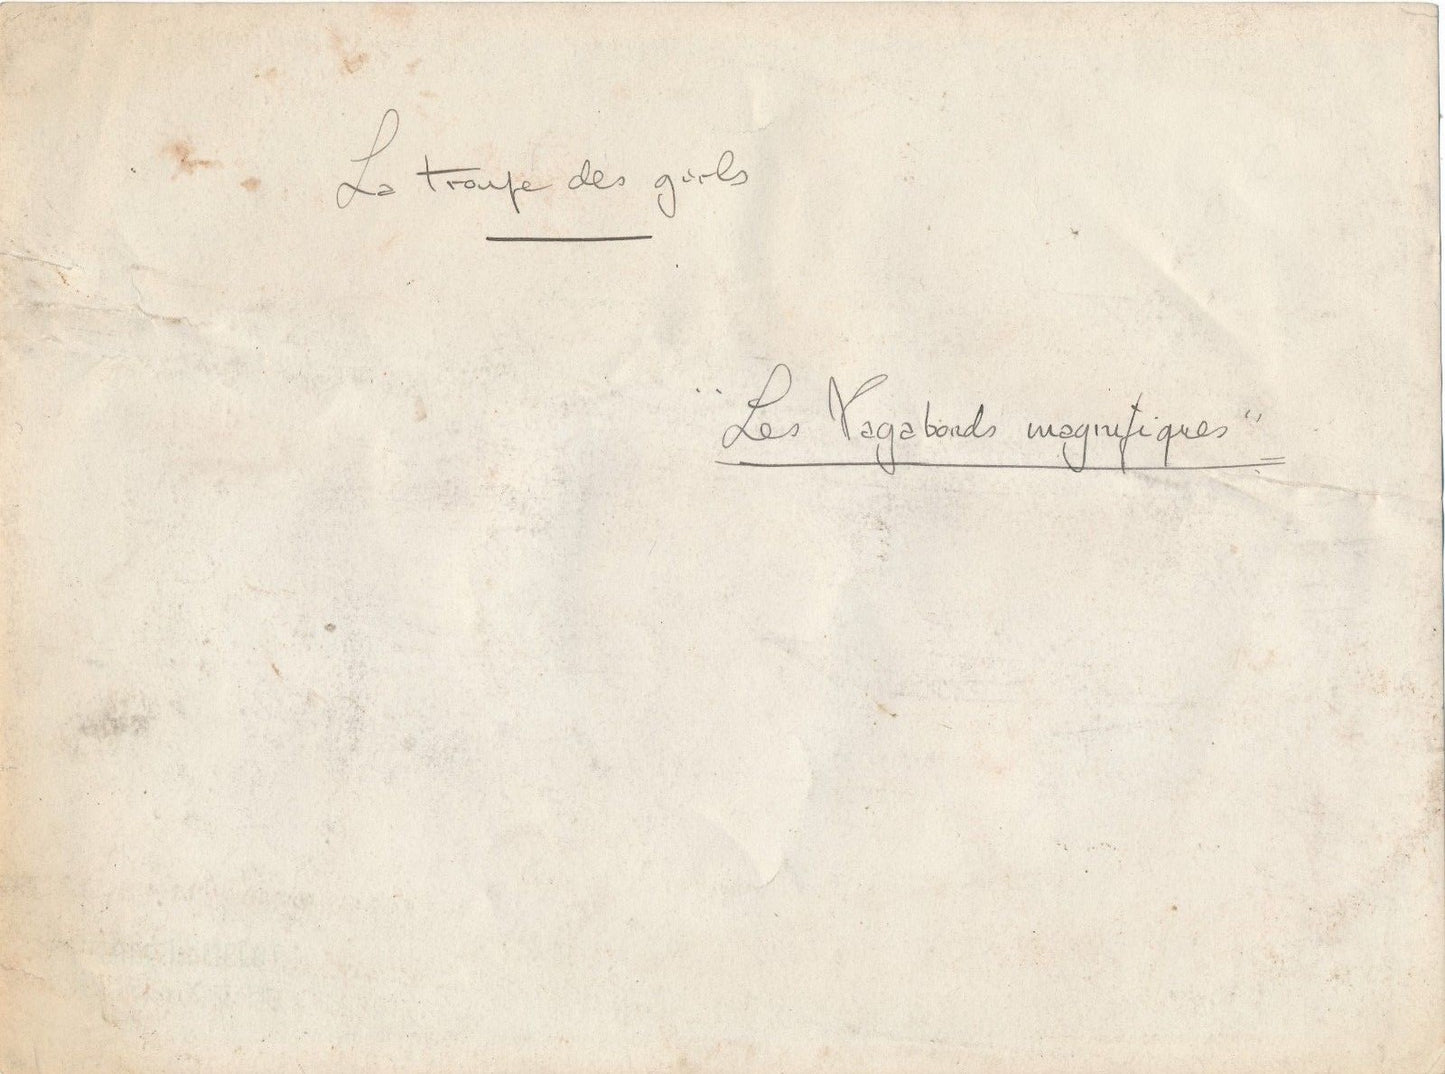 La troupe des girls
"Les Vagabonds magnifiques"